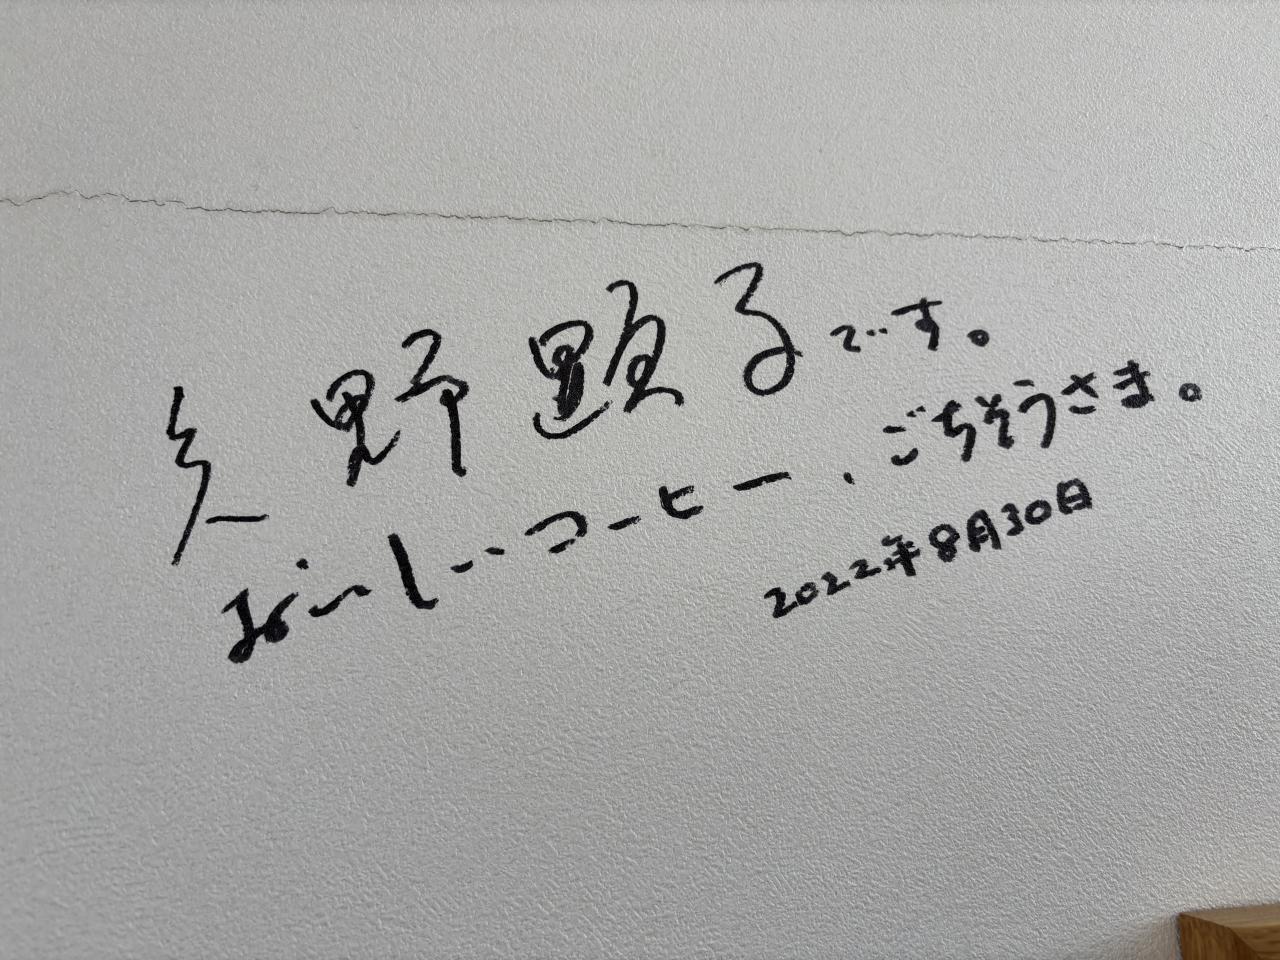 矢野顕子です。
おいしいコーヒー、ごちそうさま。
2022年8月30日